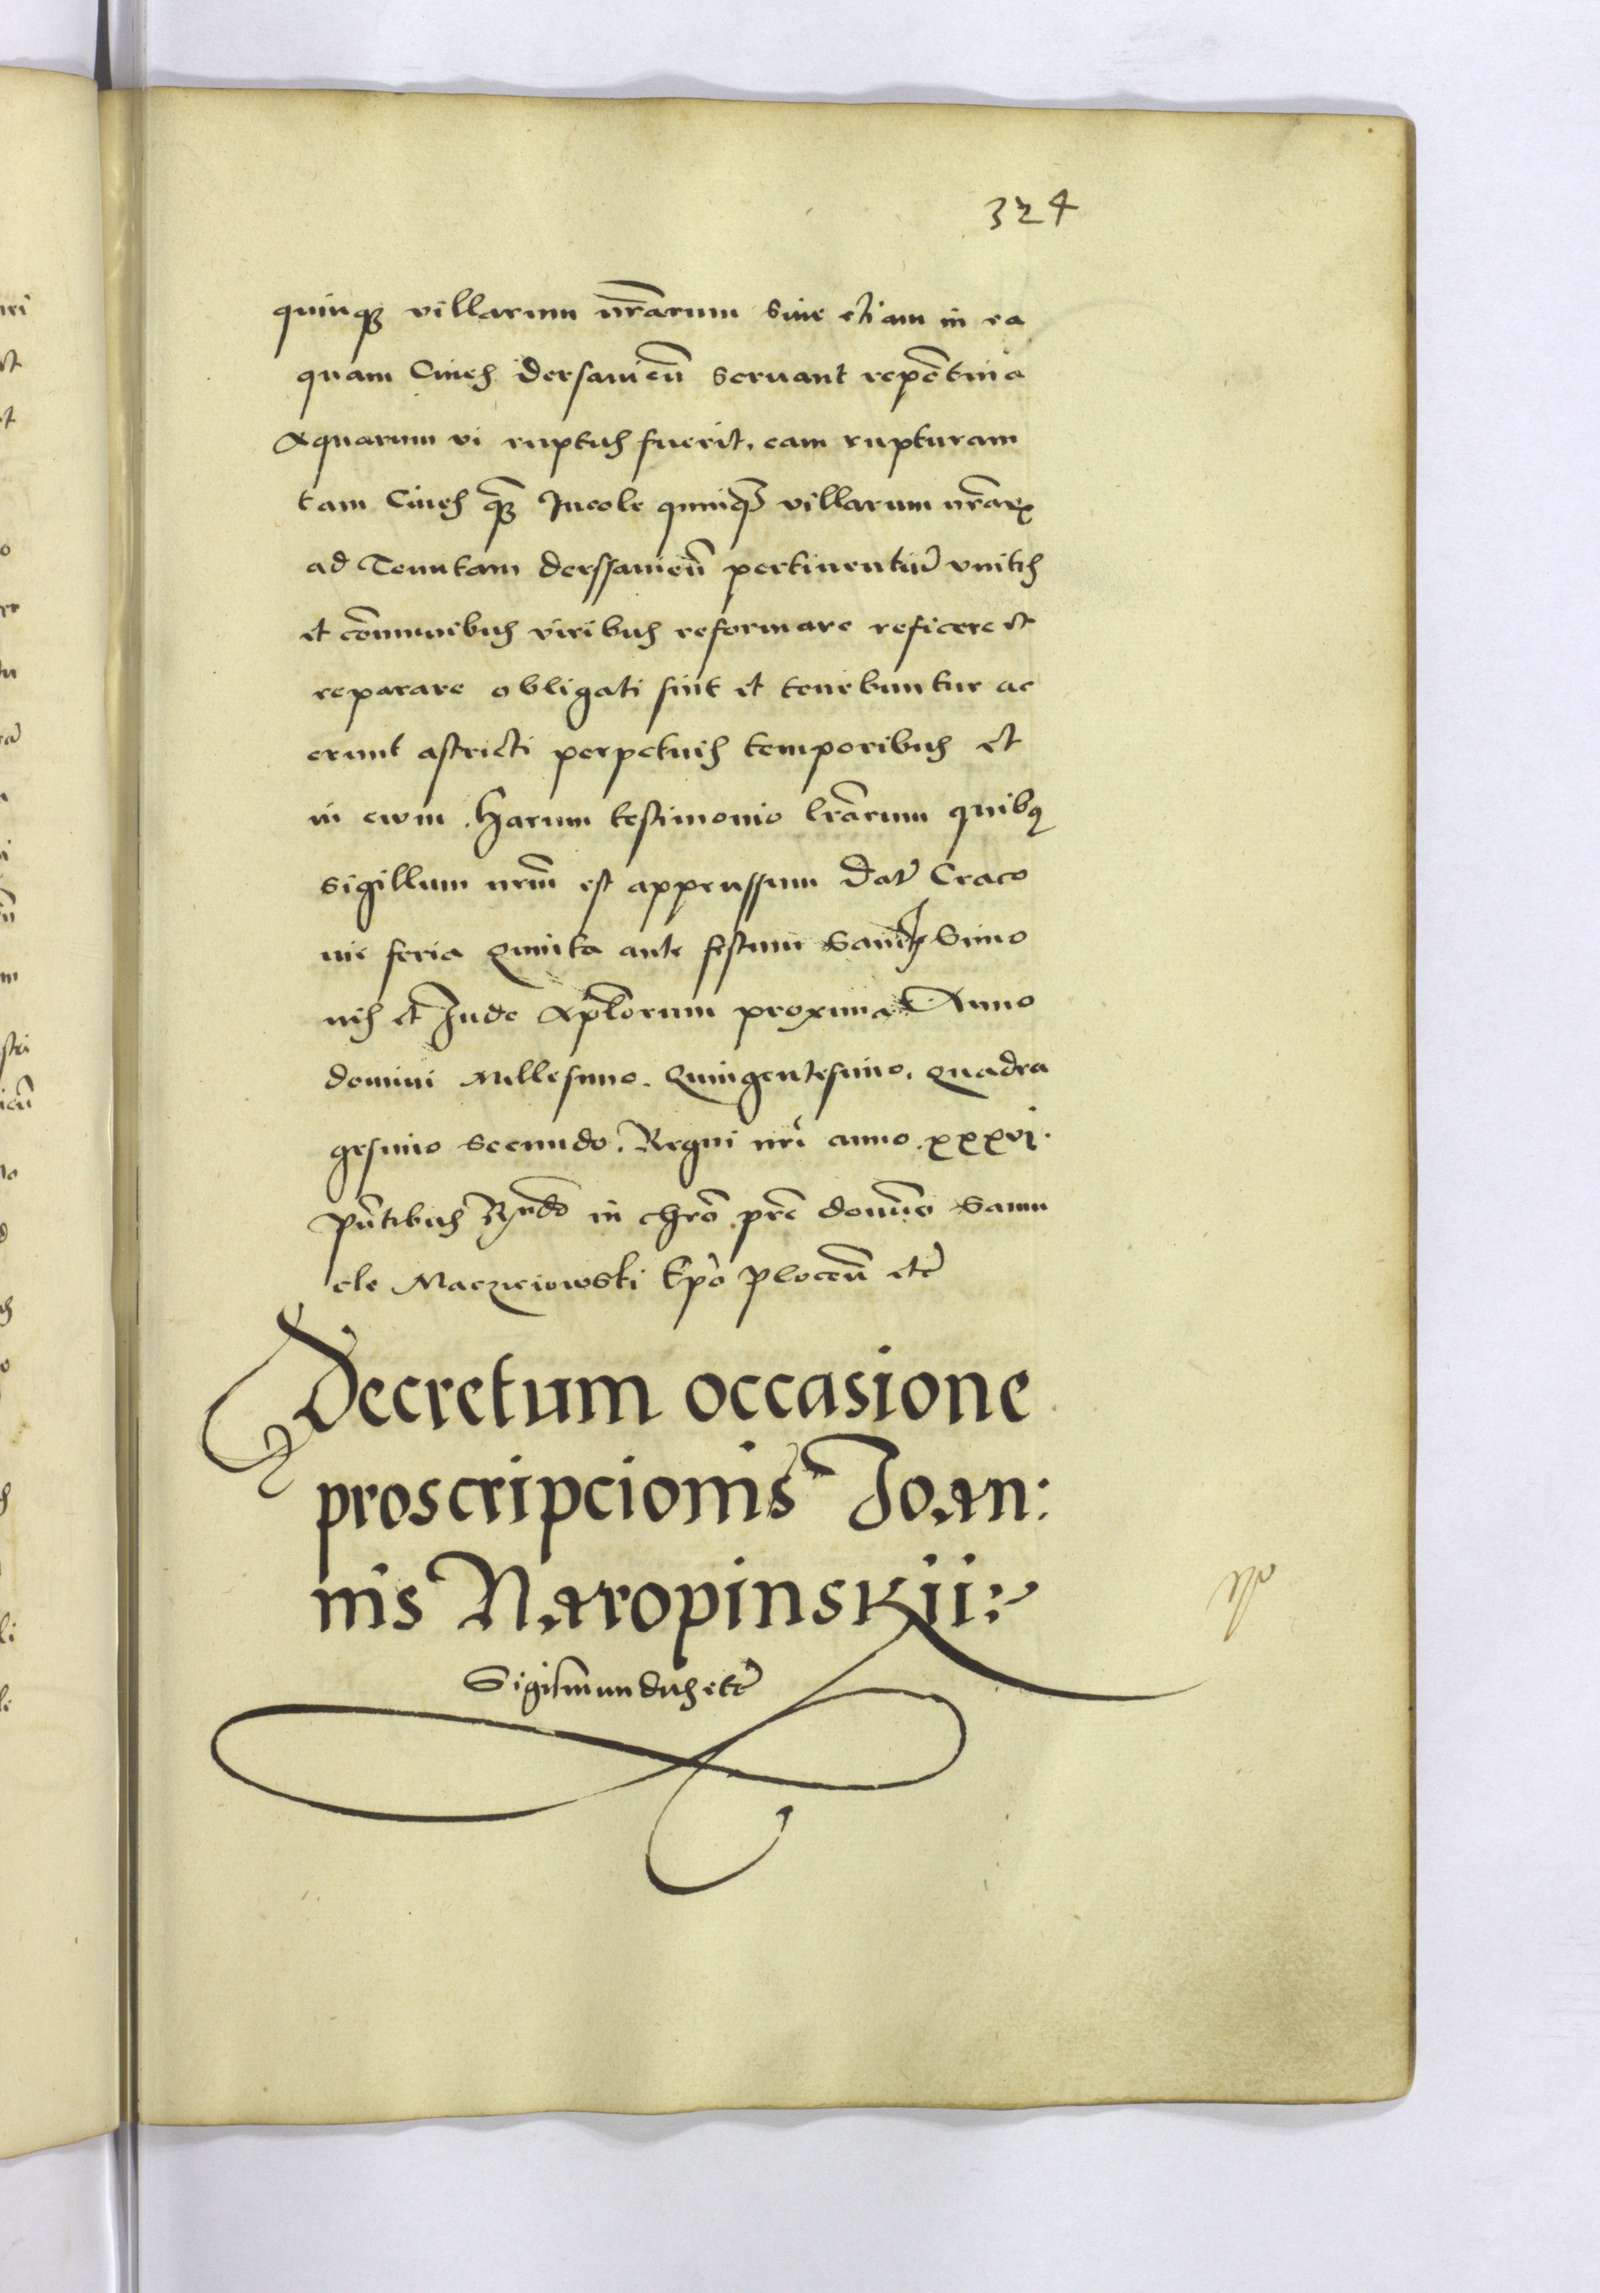 324
quinq villarum nrarum Siue etiam in ea
quam Ciues dersauien seruant repentina
Aquarum vi ruptus fuerit, eam rupturam
tam Ciues q Incole quinq villarum nrar
ad Tenutam derssauien pertinentiu vnitis
et comunibus viribus reformare reficere et
reparare obligati sint et tenebuntur ac
erunt astricti perpetuis temporibus et
in ewm. Harum testimonio lrarum quibq
sigillum nrm est appressum Dat Craco
uie feria Quinta ante festum Sanct Simo
nis et Jude Aplorum proxima Anno
domini Millesimo. Quingentesimo. Quadra
gesimo secundo. Regni nri anno. xxxvi.
Pntibus Rndo in chro pre domino Samu
ele Maczieiowski Epo Plocen etc
Decretum occasione
proscripcionis Joan:
nis Naropinskii:
Sigismundus etc